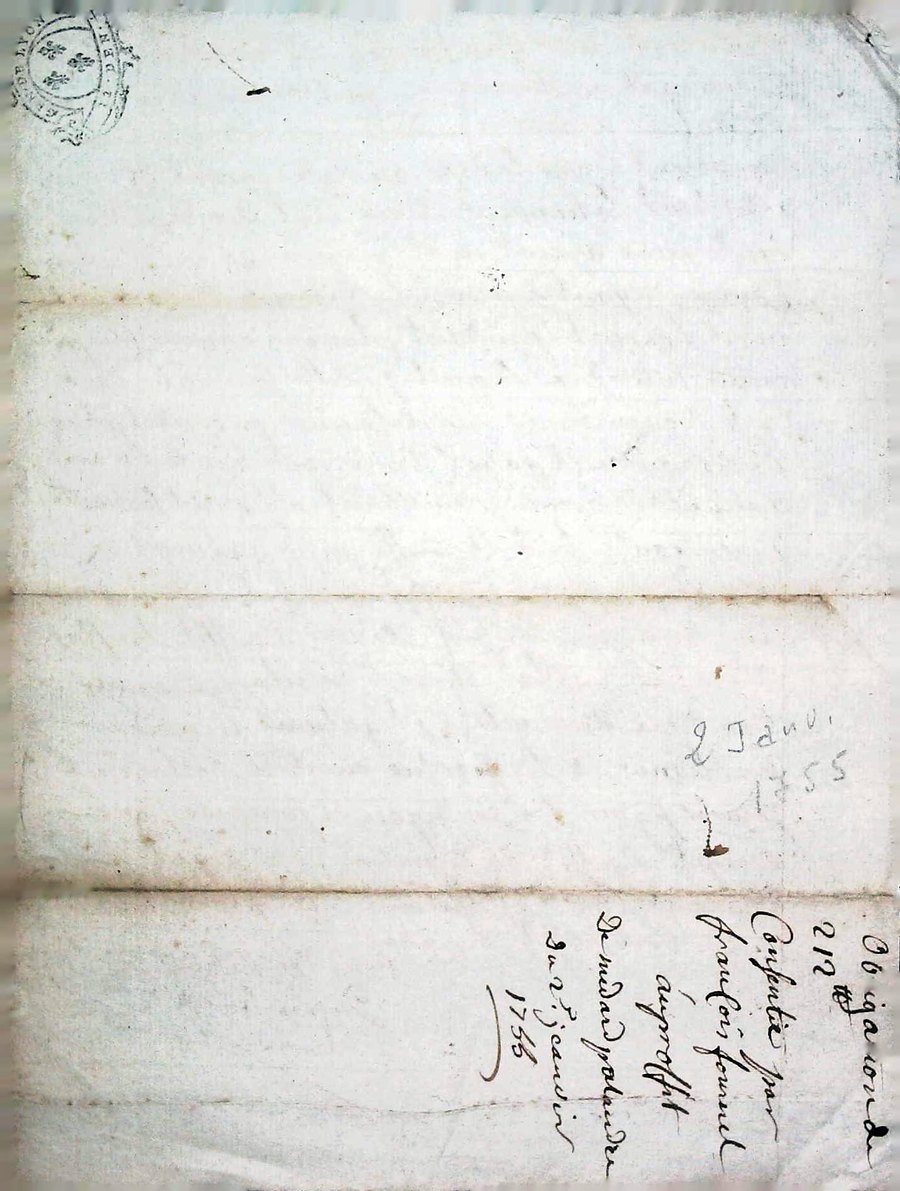 Obligation de
212 ₶
Consentie par
francois fournel
au proffit
De medard
Du 2e janvier
1755
2 Janv.
1755